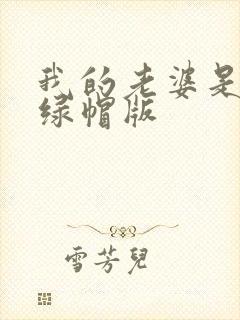 我的老婆是
绿帽版
雪芳儿